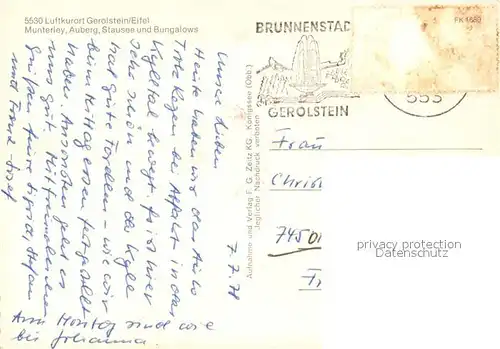 5530 Luftkurort Gerolstein/Eifel
Munterley, Auberg, Stausee und Bungalows
7.7.71
Unsere Lieben
Heute haben wir das Auto
Trotz Regen bei Abfahrt in das
Kylltal bewegt. Es ist hier
sehr schön und die Kyll
hat gute Forellen - wie wir
beim Mittagessen festgestellt
haben. Ansonsten geht es
uns gut. Mit freundlichen
Grüßen
und Josef
Am Montag sind wir
bei Johanna.
Aufnahme und Verlag F. G. Zeitz KG., Königssee (Obb.)
Jeglicher Nachdruck verboten
BRUNNENSTAD
GEROLSTEIN
553
FK 1680
Frau
Chris
745
privacy protection
Datenschutz